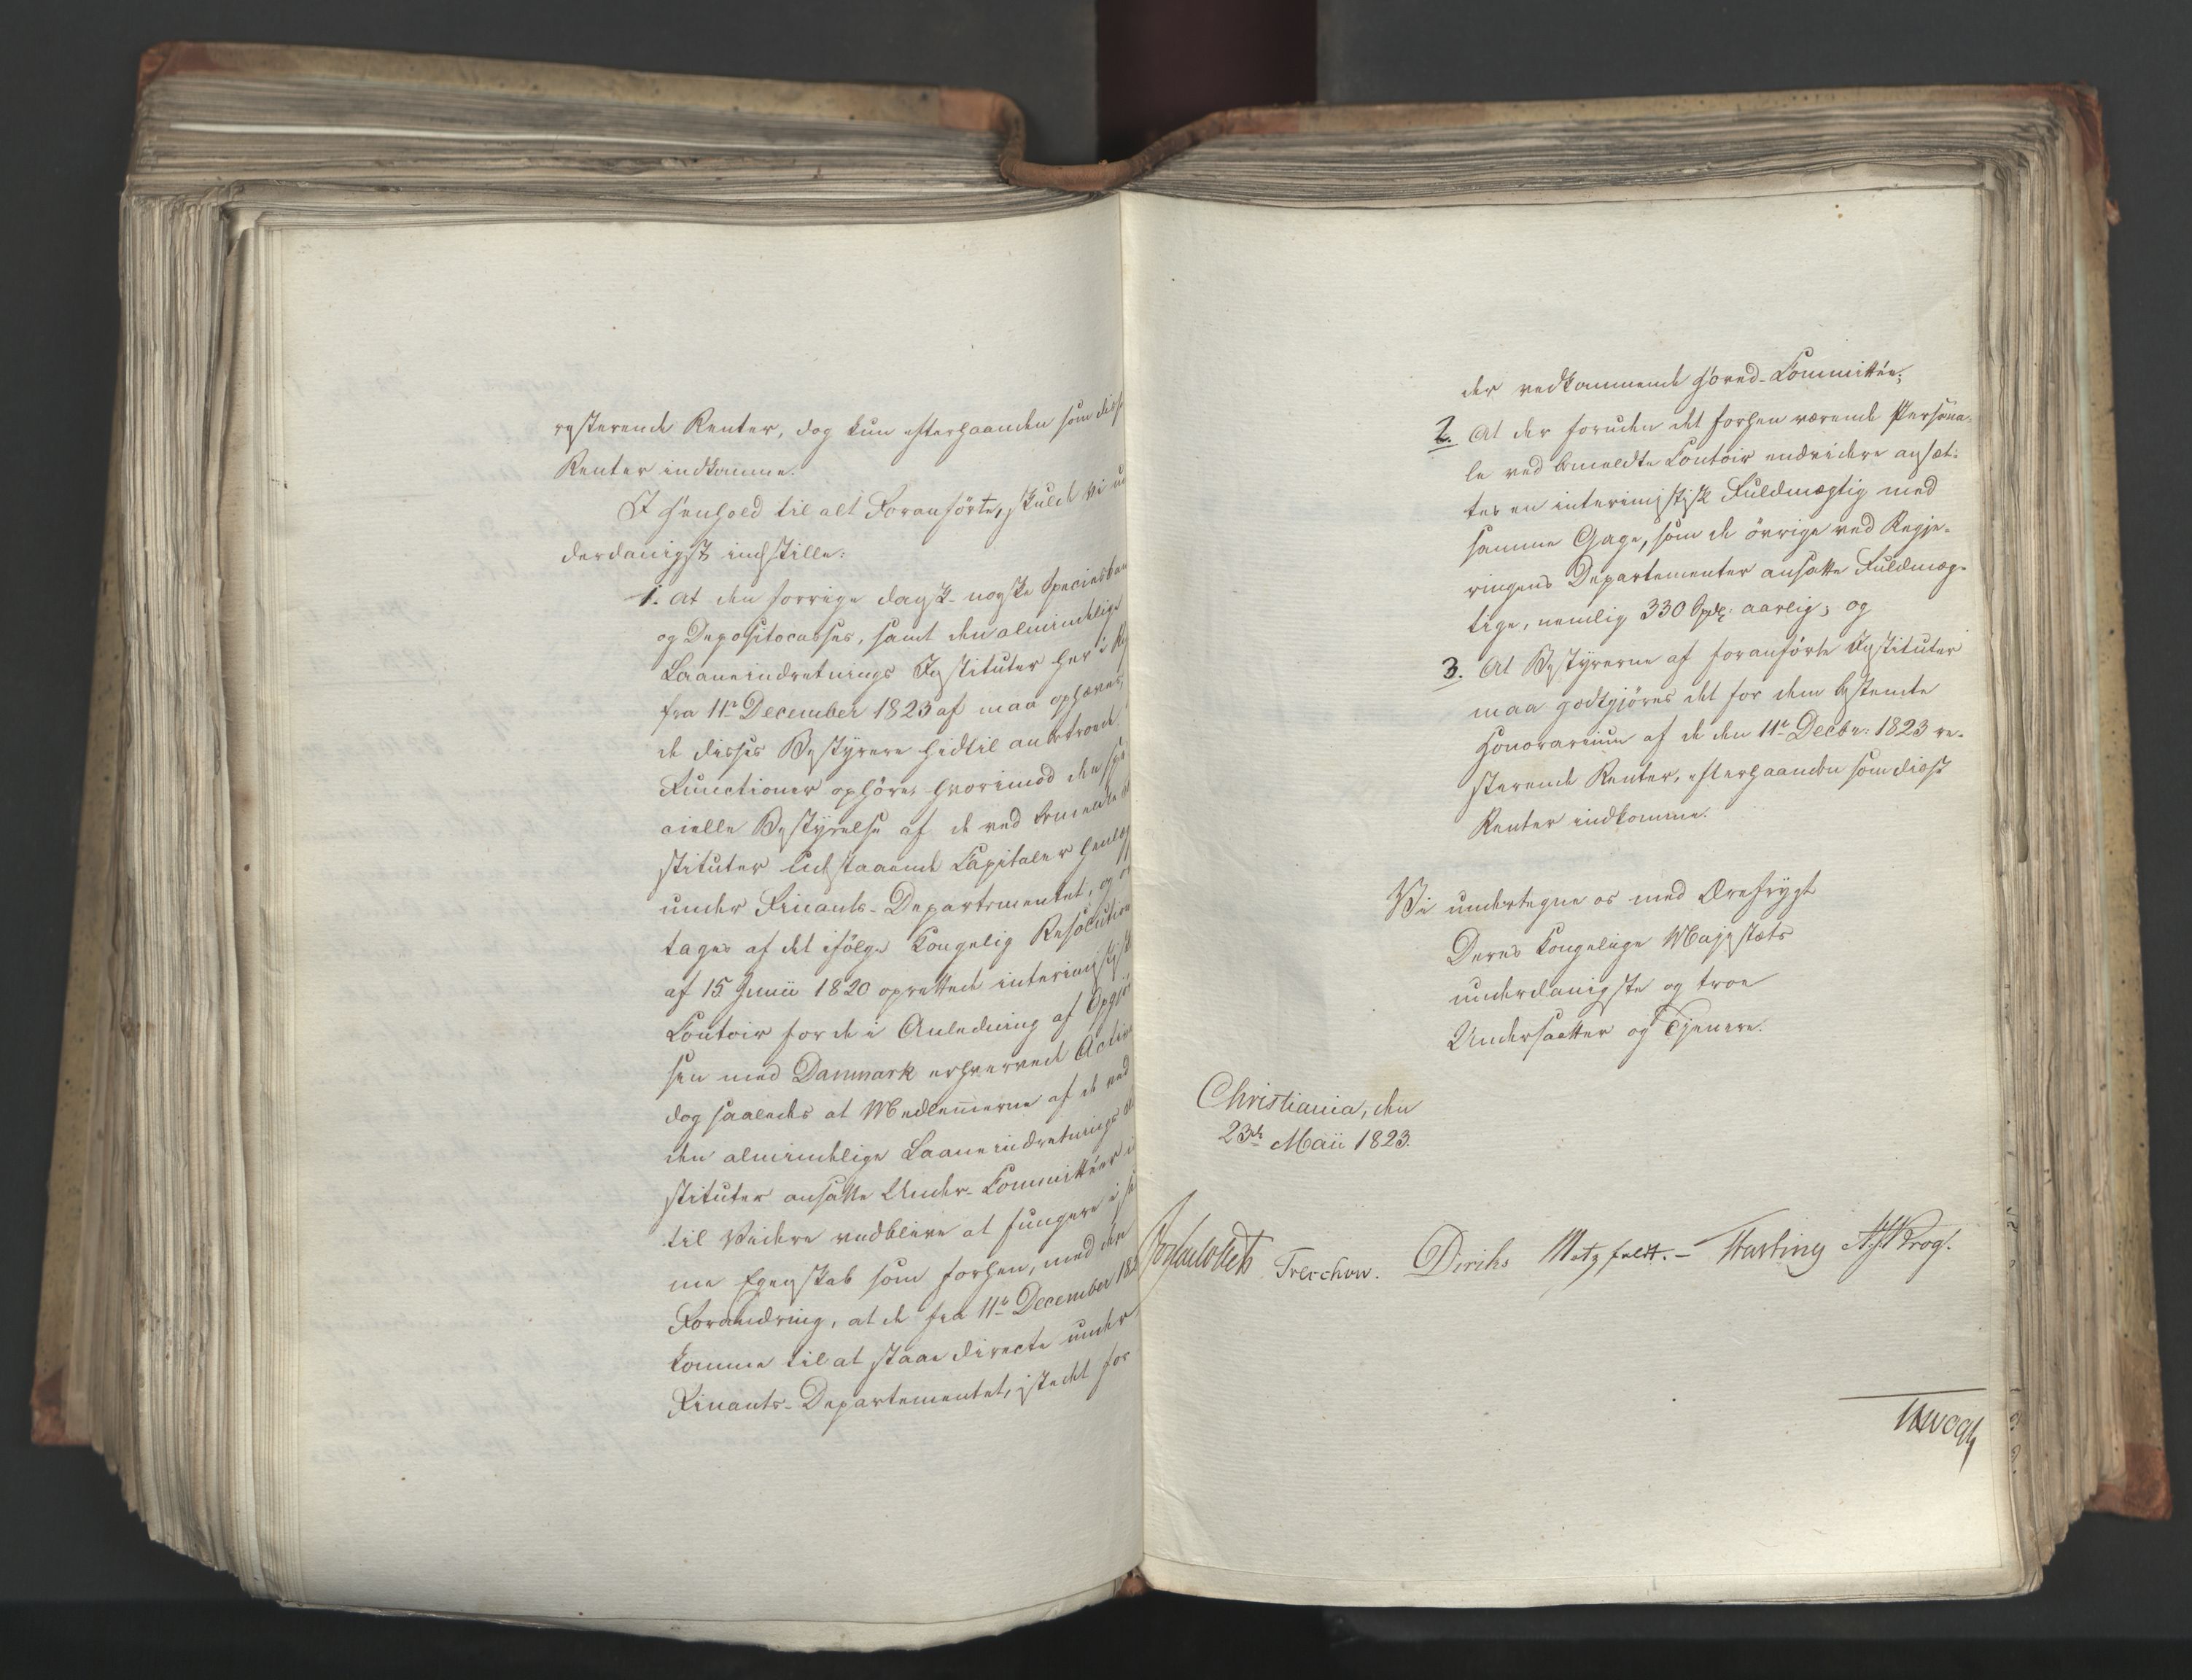 resterende Renter, dog kun efterhaanden som disse
Renter indkomme.
I Henhold til alt Foranførte, skulde Vi un
derdanigst indstille:
1. At den forrige dansk-norske Speciesban
og Depositocasses, samt den almindelige
Laaneindretnings Institutter her i
fra 11te December 1823 af maa ophæves,
de disses Bestyrere hidtil anbetroede
Functioner ophøre, hvorimod den spe
cielle Bestyrelse af de ved bemeldte In
stituter udestaaende Capitaler henlægges
under Finants-Departementet, og
tages af det ifølge Kongelig Resolution
af 15 Junii 1820 oprettede interimistiske
Contoir for de i Anledning af Opgjø
sen med Danmark erhvervede Activa
dog saaledes at Medlemmerne af de ved
den almindelige Laaneindretnings In
stituter ansatte Under-Committéer ind
til Videre vedblive at fungere i sam
me Egenskab som forhen, med den
Forandring, at de fra 11te December 182
komme til at staae directe under
Finants-Departementet, istedet for
der vedkommende Hoved-Committée;
2. At der foruden det forhen værende Persona-
le ved bemeldte Contoir endvidere ansæt-
tes en interimistisk Fuldmægtig med
samme Gage, som de øvrige ved Regje-
ringens Departementer ansatte Fuldmæg-
tige, nemlig 330 Spdr: aarlig; og
3. At Bestyrerne af foranførte Instituter
maa godtgjøres det for dem bestemte
Honorarium af de den 11te Decbr: 1823 re-
sterende Renter, efterhaanden som disse
Renter indkomme.
Vi undertegne os med Ærefrygt
Deres Kongelige Majestæts
underdanigste og troe
Undersaatter og Tjenere.
Christiania, den
23de Maii 1823.
Treschow. Diriks Motzfeldt. - Fasting